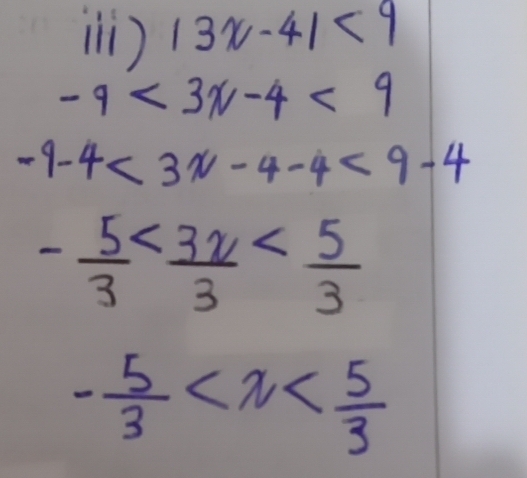 iii) |3x-4| < 9
-9 < 3x-4 < 9
-9-4 < 3x-4-4 < 9-4
-5/3 < 3x/3 < 5/3
-5/3 < x < 5/3